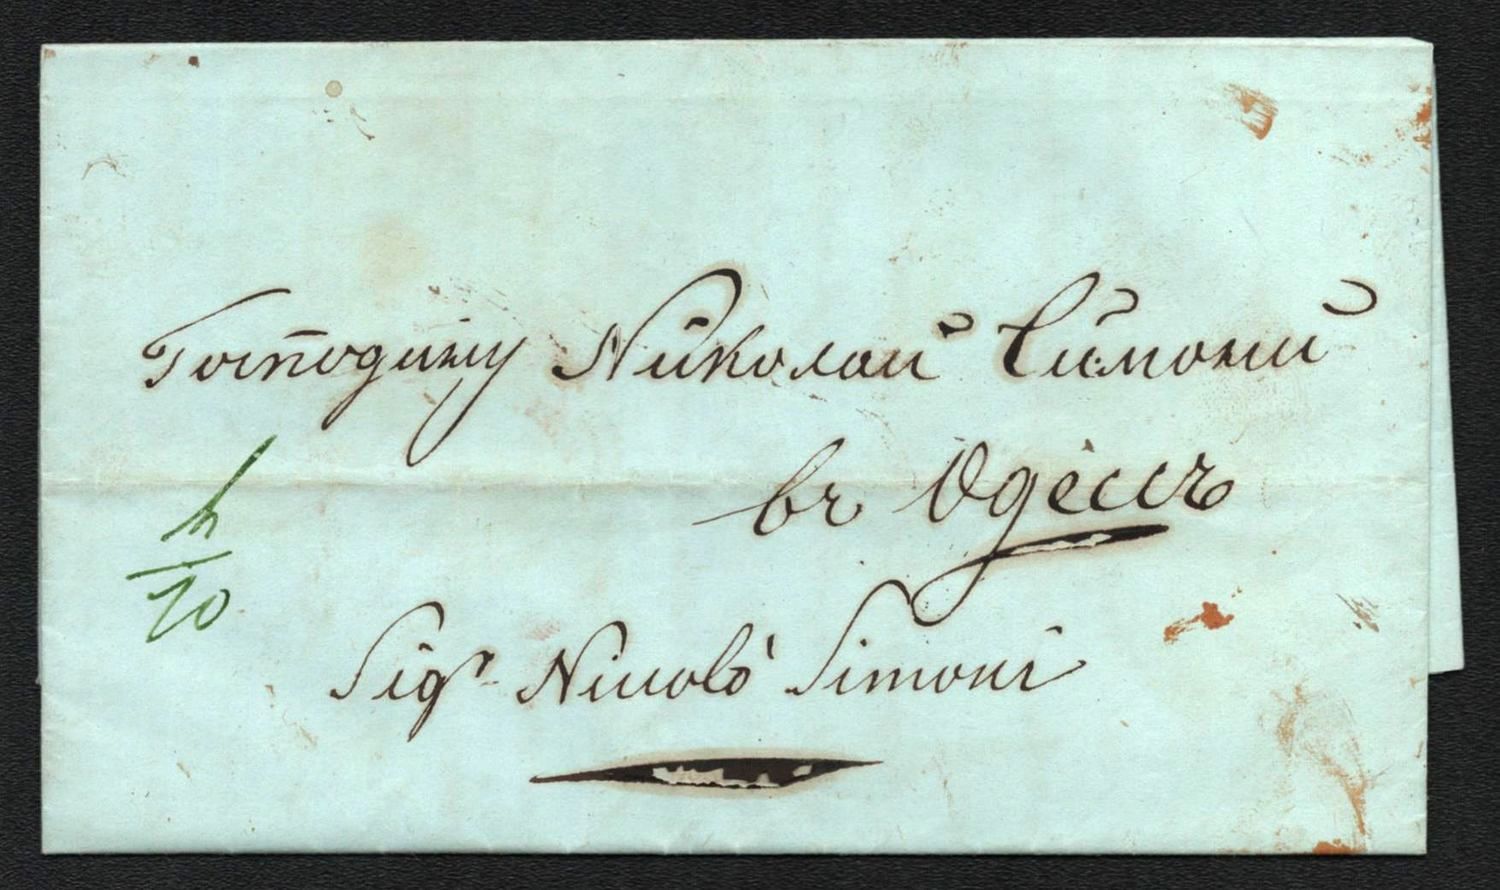 Господину Николай Симони
въ Одессъ
h
10
Sigr Nicolò Simoni